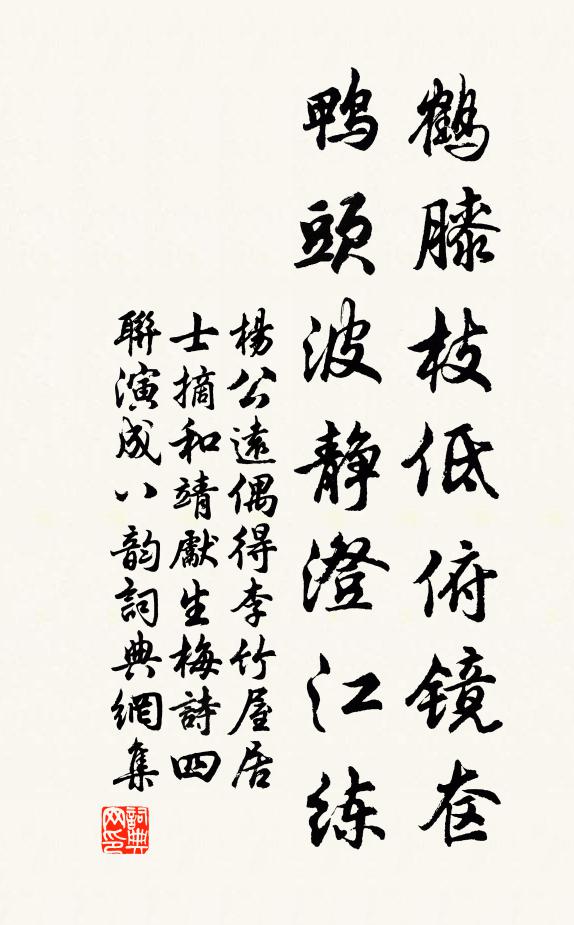 鹤膝枝低俯镜奁
鸭頭波静澄江练
楊公遠偶得李竹屋居
士摘和靖獻生梅詩四
聯演成八韵詞典網集
詞典
网印